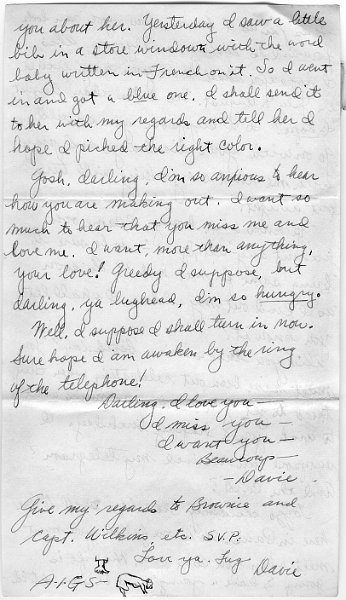 you about her. Yersterday I saw a little
bib in a store window with the word
baby written in French on it. So I went
in and got a blue one. I shall send it
to her with my regards and tell her I
hope I picked the right color.
Gosh, darling, I'm so anxious to hear
how you are making out. I want so
much to hear that you miss me and
love me. I want, more than anything,
your love! Greedy I suppose, but
darling, ya lughead, I'm so hungry.
Well, I suppose I shall turn in now.
Sure hope I am awaken by the ring
of the telephone!
Darling, I love you—
I miss you—
I want you—
Beaucoup—
— Davie
Give my regards to Brownie and
Capt. Wilkins, etc. S.V.P.
Love ya. Lug Davie
A-I-G-S-